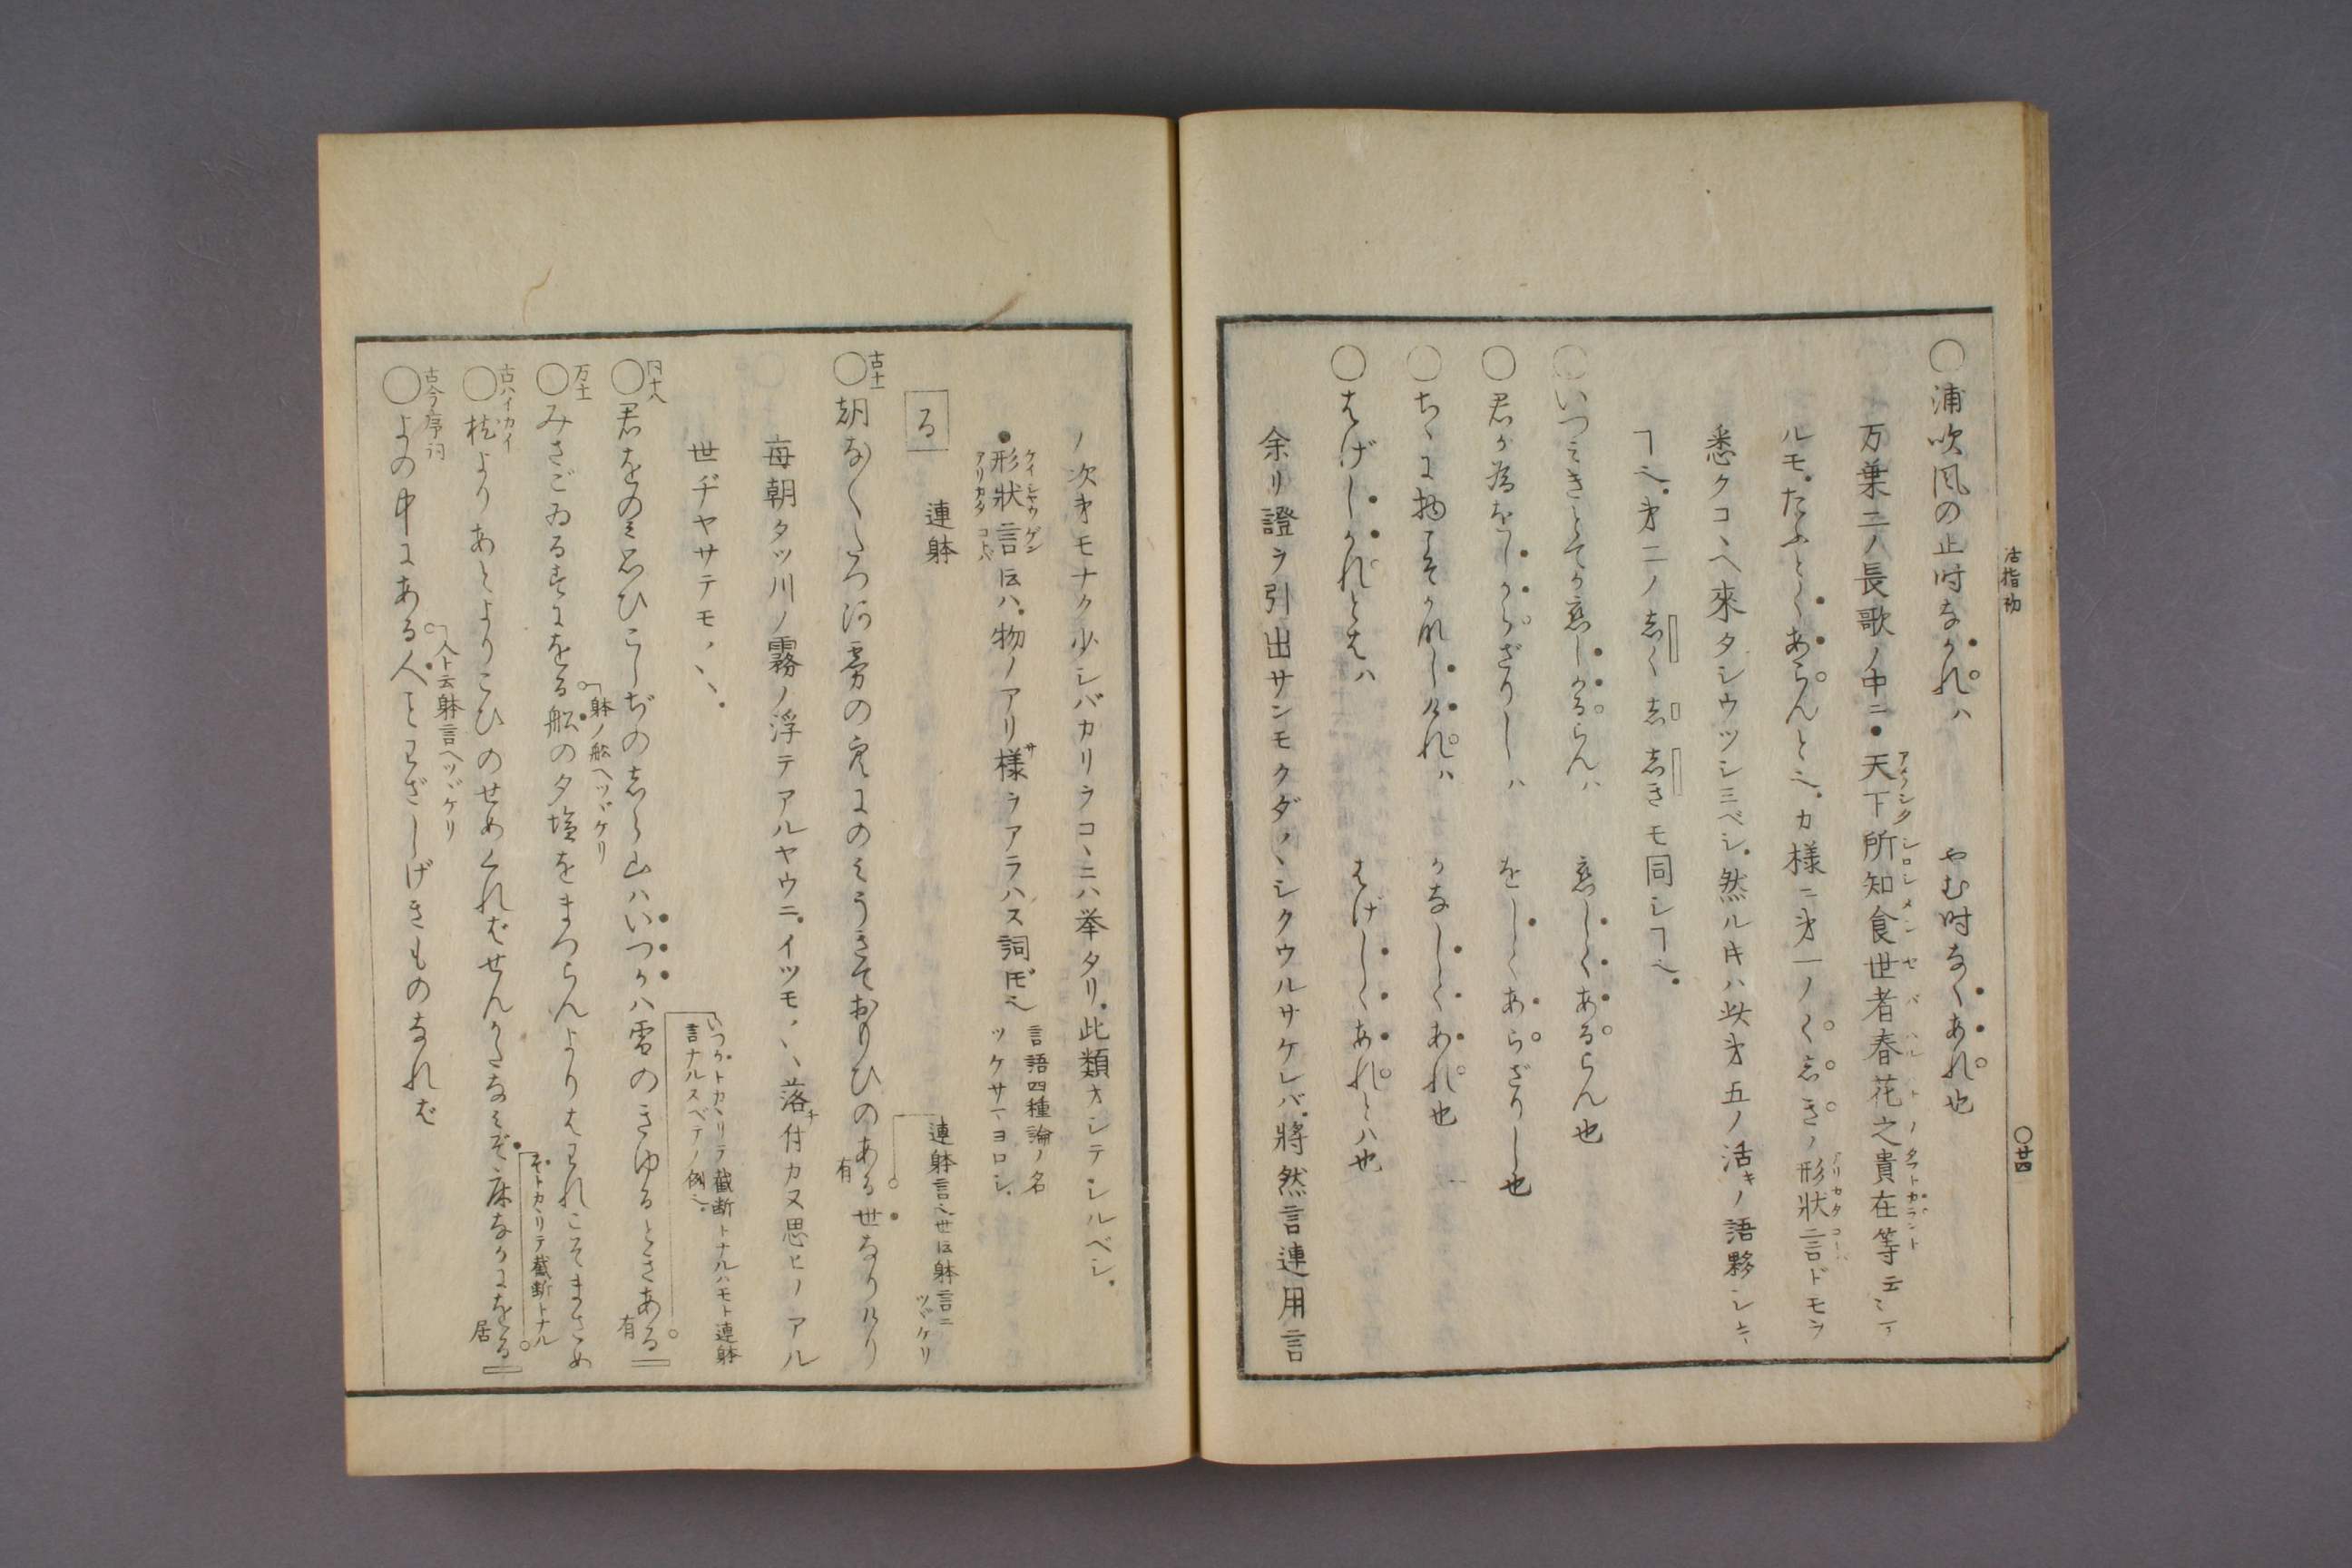 活指初
〇廿四
〇浦吹風の止時なかれハ　やむ時なくあれ也
万葉二ノ長歌ノ中ニ●天下所知食世者春花之貴在等
ルモ。たふとくあらんと
カ様ニ
形状言ドモヲ
悉クコヽヘ來タシウツシミベシ。然ル
五ノ活キノ語夥シキ
ニノ志く志志きモ同シ
恋しかるらんハ　恋しくあるらん也
〇君が為をしからざりしハ　をしくあらざりし也
〇ちゝに物こそかなしけれハ　かなしくあれ也
〇はげしかれとはハ　はげしくあれとハ也
余リ證ヲ引出サンモクダヽヽシクウルサケレバ。將然言連用言
ノ次第モナク少シバカリヲコヽニハ挙タリ。此類オシテシルベシ。
●形狀言云ハ。物ノアリ様ヲアラハス詞
ケイシャウゲン
アリカタコトバ
言語四種論ノ名
ツケサマヨロシ。
る　連躰
連躰言
世云躰言ニ
ツヾケリ
古十一
〇朝な〱たつ河雰の空にのみうきておもひのある世なりけり
有
每朝タツ川ノ霧ノ浮テアルヤウニ。イツモ
落付カヌ思ヒノアル
世ヂャサテモ
同十八
〇君をのみ思ひこしぢのしら山ハいつかハ雪のきゆるときある
有
いつかトカヽリテ截断トナルハモト連躰
言ナルスベテノ例
万十一
〇みさごゐるすにをる舩の夕塩をまつらんよりはわれこそまさめ
躰ノ舩ヘツヾケリ
古ハイカイ
〇枕よりあとよりこひのせめくればせんかたなみぞ床なかにをる
居
ぞトカヽリテ截断トナル
古今序詞
〇よの中にある人ことわざしげきものなれば
人ト云躰言ヘツヾケリ